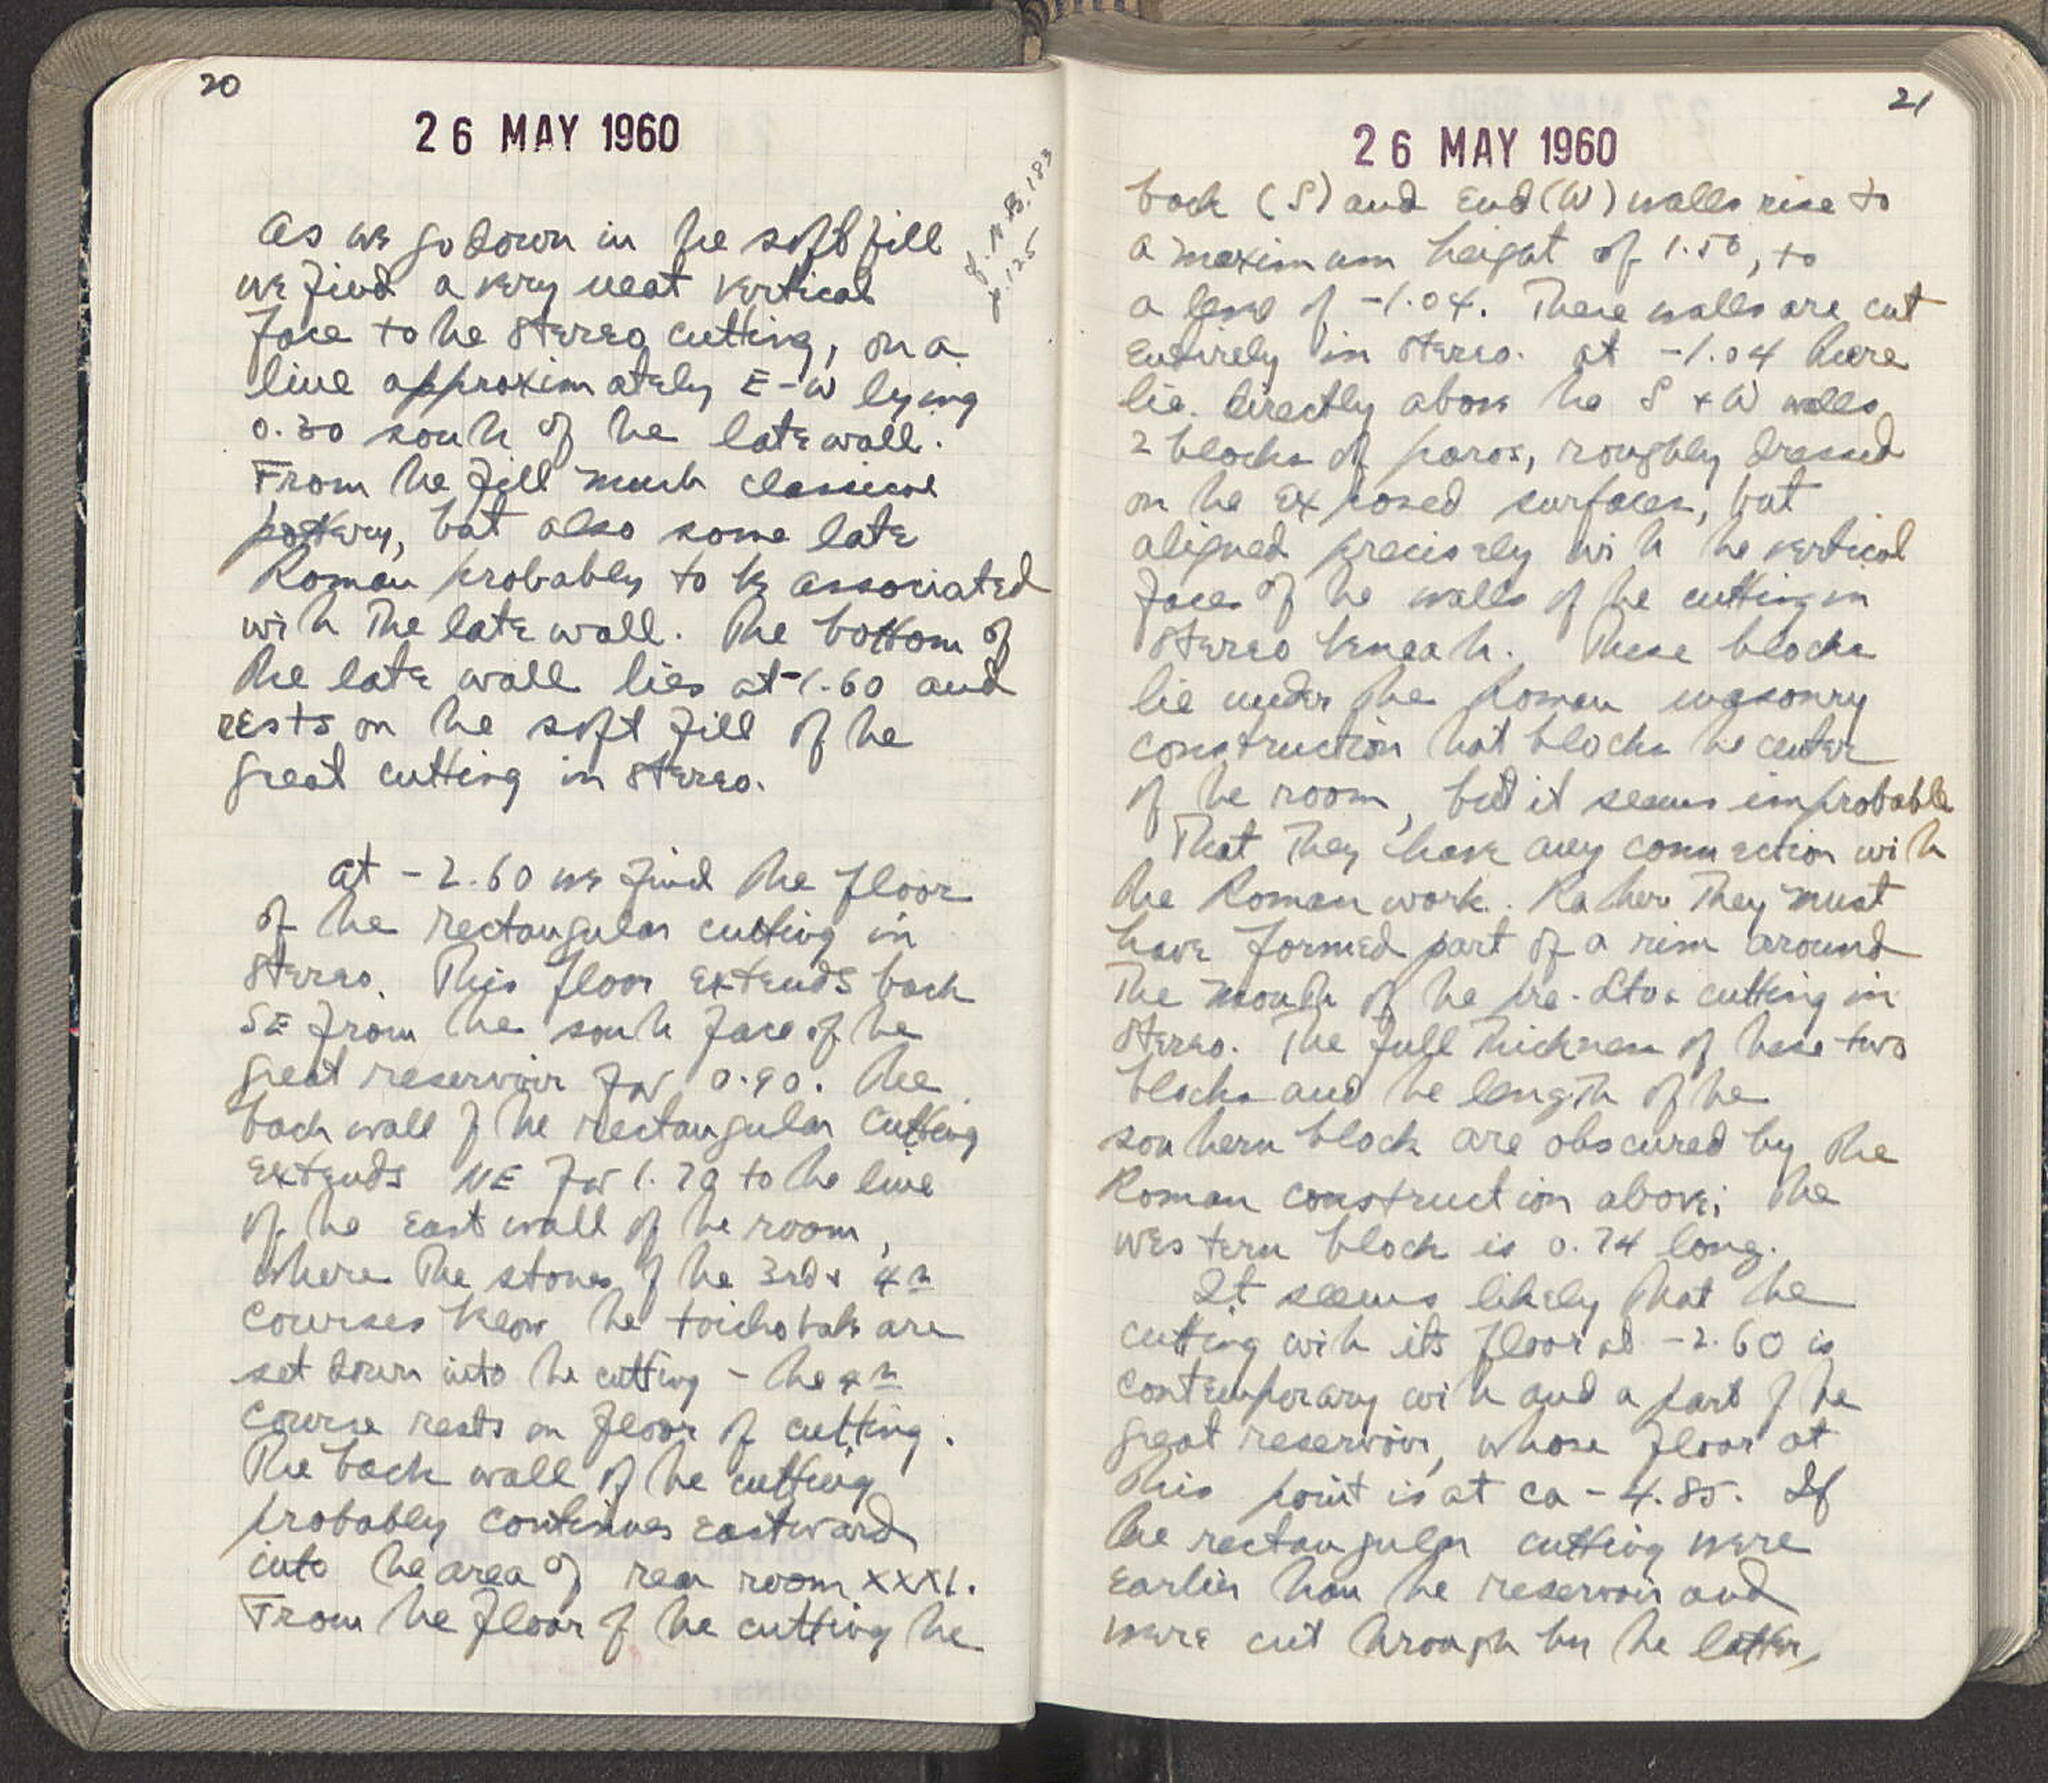 20
26 MAY 1960
As we go down in the soft fill
we find a very neat vertical
face to the stereo cutting, on a
line approximately E-W lying
0.30 south of the late wall.
From the fill much classical
pottery, but also some late
Roman probably to be associated
with the late wall. The bottom of
the late wall lies at -1.60 and
rests on the soft fill of the
great cutting in stereo.
At -2.60 we find the floor
of the rectangular cutting in
stereo. This floor extends back
SE from the south face of the
great reservoir for 0.90. The
back wall of the rectangular cutting
extends NE for 1.70 to the line
of the east wall of the room,
where the stones of the 3rd & 4th
courses below the toichobate are
set down into the cutting - the 4th
course rests on floor of cutting.
The back wall of the cutting
probably continues eastward
into the area of rear room XXXI.
From the floor of the cutting the
N.B. 183
p. 125
21
26 MAY 1960
back (S) and end (W) walls rise to
a maximum height of 1.50, to
a level of -1.04. These walls are cut
entirely in stereo. At -1.04 there
lie directly above the S + W walls
2 blocks of poros, roughly dressed
on the exposed surfaces, but
aligned precisely with the vertical
faces of the walls of the cutting in
stereo beneath. These blocks
lie under the Roman masonry
construction that blocks the center
of the room, but it seems improbable
that they have any connection with
the Roman work. Rather they must
have formed part of a rim around
the mouth of the pre-Stoa cutting in
stereo. The full thickness of these two
blocks and the length of the
southern block are obscured by the
Roman construction above; the
western block is 0.74 long.
It seems likely that the
cutting with its floor at -2.60 is
contemporary with and a part of the
great reservoir, whose floor at
this point is at ca -4.85. If
the rectangular cutting were
earlier than the reservoir and
were cut through by the latter,